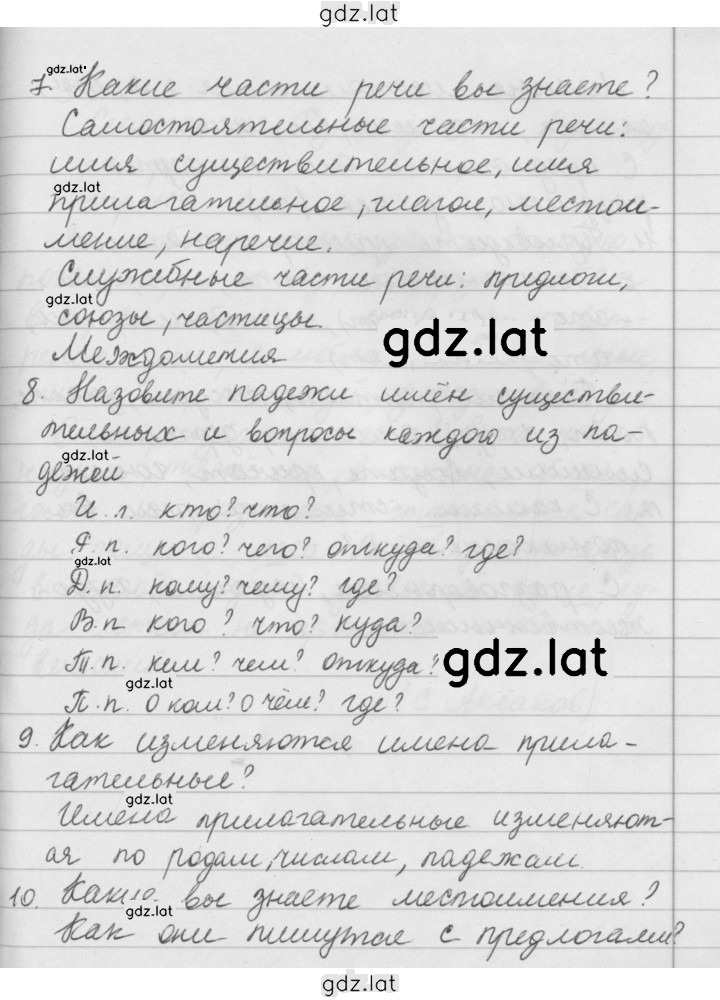 gdz.lat
gdz.lat
7. Какие части речи вы знаете?
Самостоятельные части речи:
имя существительное, имя
gdz.lat
прилагательное, глагол, местои-
мение, наречие.
Служебные части речи: предлоги,
gdz.lat
союзы, частицы.
gdz.lat
Междометия
8. Назовите падежи имён существи-
тельных и вопросы каждого из па-
gdz.lat
дежей
И. п. кто? что?
Р. п. кого? чего? откуда? где?
gdz.lat
Д. п. кому? чему? где?
В. п. кого? что? куда?
Т. п. кем? чем? откуда?
gdz.lat
gdz.lat
П. п. О ком? О чём? где?
9. Как изменяются имена прила-
гательные?
gdz.lat
Имена прилагательные изменяют-
ся по родам, числам, падежам.
10. Какие вы знаете местоимения?
gdz.lat
Как они пишутся с предлогами?
gdz.lat